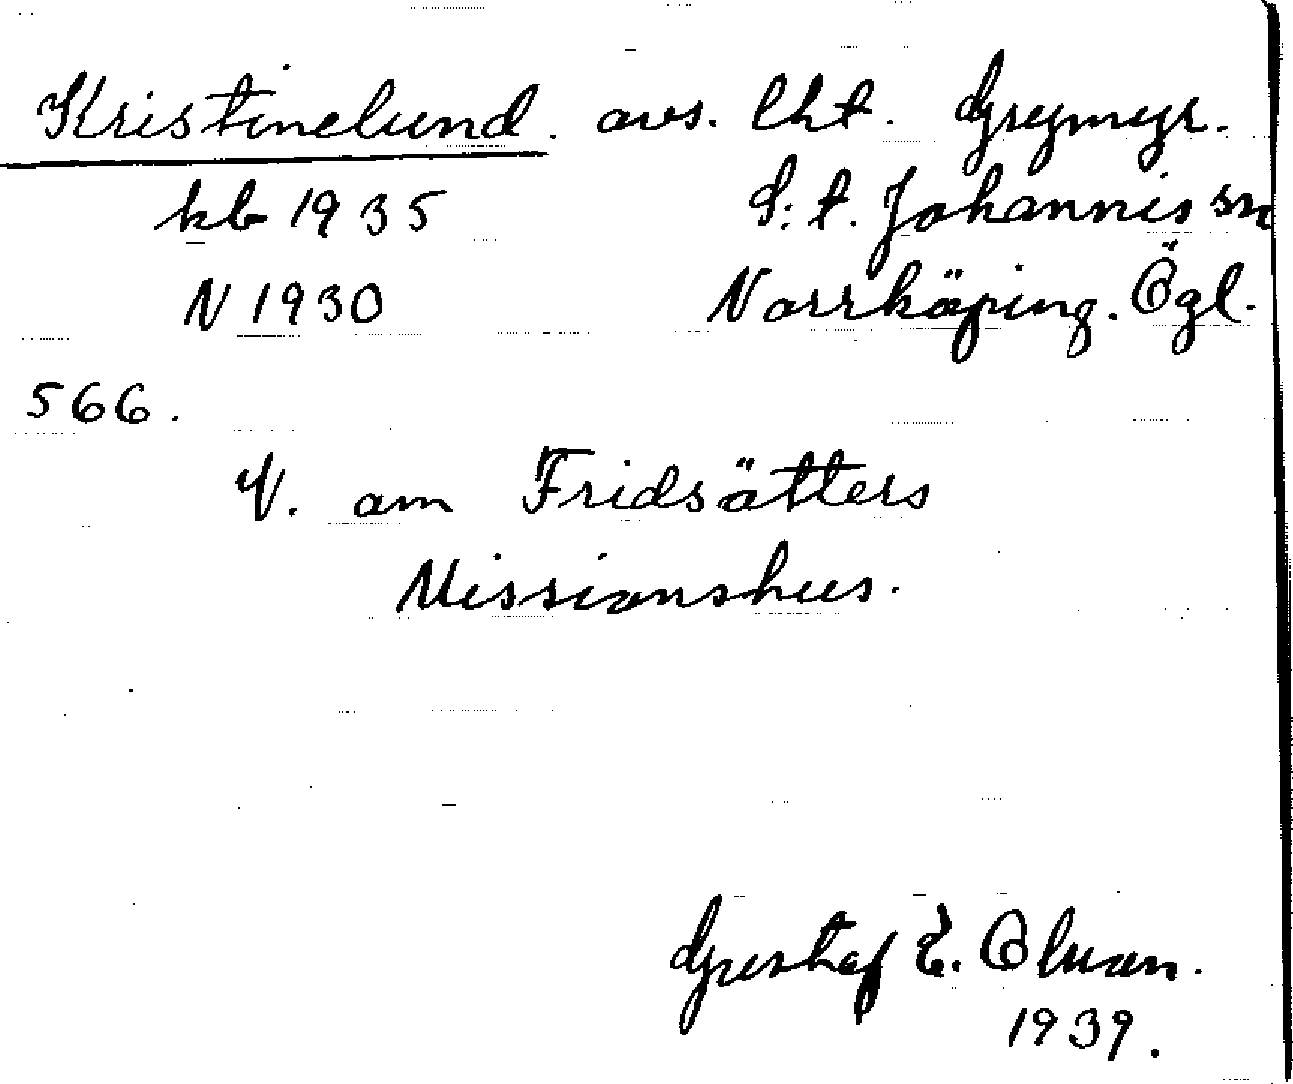 Kristinelund. avs. lht. Greymyr.
kb 1935 S:t. Johannis sn
N 1930 Norrköping. Ögl.
566.
V. om Fridsätters
Missionshus.
Gustaf E.
1939.